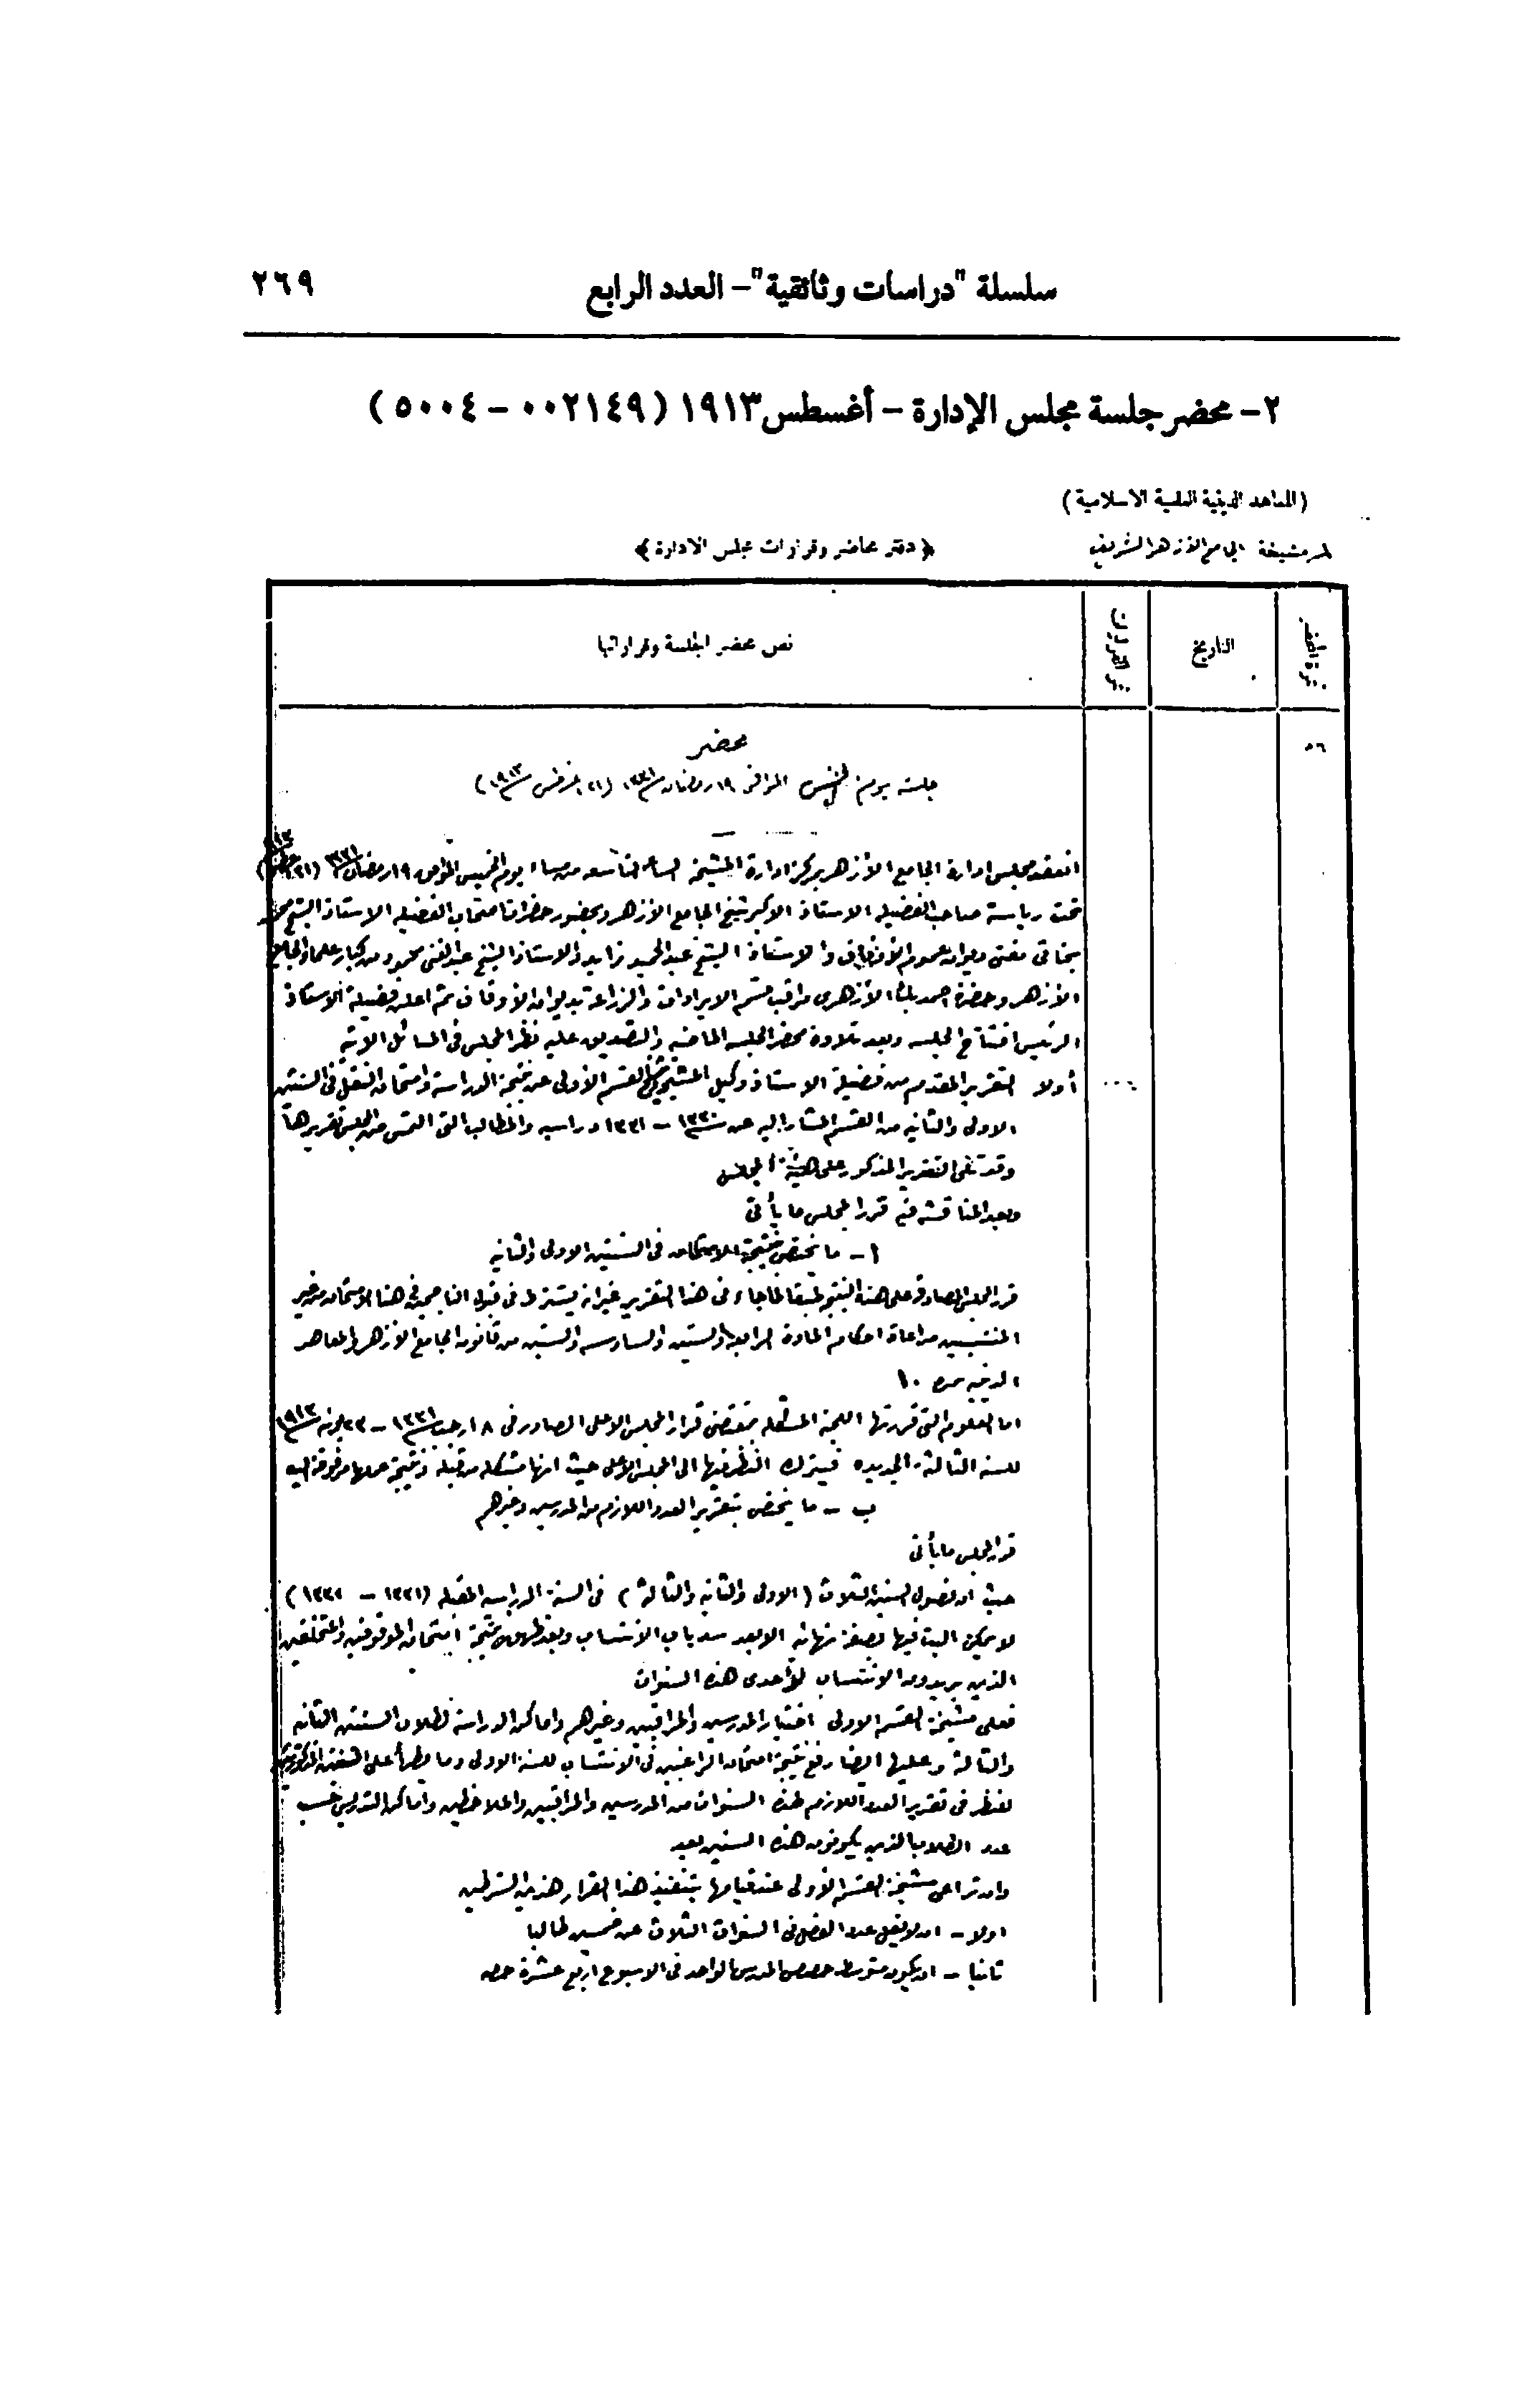 سلسلة "دراسات وثائقية" – العدد الرابع
٢٦٩
٢- محضر جلسة مجلس الإدارة – أغسطس ١٩١٣ (٠٠٢١٤٩ – ٥٠٠٤)
(المعاهد الدينية العلمية الاسلامية)
مشيخة الجامع الازهر الشريف
﴿دفتر محاضر وقرارات مجلس الادارة﴾
نمرة المحضر
التاريخ
نمر القرارات
نص محضر الجلسة وقراراتها
٥٦
محضر
جلسة يوم الخميس الموافق ١٩ رمضان ١٣٣١ (٢١ اغسطس ١٩١٣)
انعقد مجلس ادارة الجامع الأزهر بمركز ادارة المشيخة الساعة التاسعة من مساء يوم الخميس الموافق ١٩ رمضان ١٣٣١ (٢١
تحت رياسة صاحب الفضيلة الاستاذ الاكبر شيخ الجامع الازهر وبحضور حضرات اصحاب الفضيلة الاستاذ الشيخ محمد
مفتى ديوان عموم الأوقاف والاستاذ الشيخ عبد الحميد زايد والاستاذ الشيخ عبد الغنى محمود من كبار علماء الجامع
الأزهر وحضرة احمد بك الأزهرى مراقب قسم الايرادات والزراعة بديوان الأوقاف ثم اعلن فضيلة الاستاذ
الرئيس افتتاح الجلسة وبعد تلاوة محضر الجلسة الماضية والتصديق عليه نظر المجلس فى المسائل الاتية
أولا التقرير المقدم من فضيلة الاستاذ وكيل المشيخة القسم الأولى عن نتيجة الدراسة وامتحان النقل فى السنتين
الاولى والثانية من القسم المشار اليه عن سنة ١٣٣٠ – ١٣٣١ دراسية والمطالب التى التمس من المجلس تقريرها
وقد تلى التقرير المذكور على هيئة المجلس
وبعد المناقشة فيه قرر المجلس ما يأتى
أ – ما يختص بنتيجة الامتحان فى السنتين الاولى والثانية
قرر المجلس المصادقة على هذه النتيجة طبقا لما جاء فى هذا التقرير غير انه يشترط فى قبول الناجحين فى هذا الامتحان من غير
المنتسبين مراعاة احكام المادة الرابعة والستين والسادسة والستين من قانون الجامع الازهر والمعاهد
الدينية نمرة ١٠
اما العلوم التى قررتها اللجنة المشكلة بمقتضى قرار المجلس الاعلى الصادر فى ١٨ رجب ١٣٣١ – ٢٣ يونيه ١٩١٣
للسنة الثالثة الجديدة فيترك النظر فيها الى المجلس الأعلى حيث انها مشكلة من قبله ونتيجة عملها مرفوعة اليه
ب – ما يختص بتقرير العدد اللازم من المدرسين وغيرهم
قرر المجلس ما يأتى
حيث ان فصول السنين الثلاث (الاولى والثانية والثالثة) فى السنة الدراسية المقبلة (١٣٣١ – ١٣٣٢)
لا يمكن البت فيها بصفة نهائية الا بعد سد باب الانتساب وبعد ظهور نتيجة امتحان الموقوفين والمتخلفين
الذين يريدون الانتساب لأحدى هذه السنوات
فعلى مشيخة القسم الاولى اختيار المدرسين والمراقبين وغيرهم واماكن الدراسة لطلاب السنتين الثانية
والثالثة وعليها ايضا رفع نتيجة امتحان الراغبين فى الانتساب للسنة الاولى وما يطرأ على السنتين المذكورتين
لننظر فى تقرير العدد اللازم لهذه السنوات من المدرسين والمراقبين والملاحظين واماكن التدريس حسب
عدد الطلاب الذين يكونون هذه السنين بعد
وان تراعى مشيخة القسم الأولى عند قيامها بتنفيذ هذا القرار هذين الشرطين
اولا – ان لا يقل عدد الفصل فى السنوات الثلاث عن خمسين طالبا
ثانيا – ان يكون متوسط حصص المدرس الواحد فى الاسبوع اربع عشرة حصه